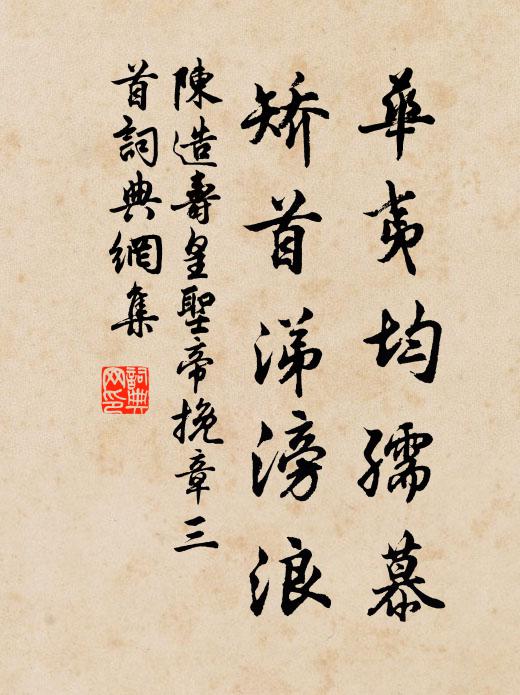 華夷均孺慕
矯首涕滂浪
陳造壽皇聖帝挽章三
首詞典網集
詞典网印